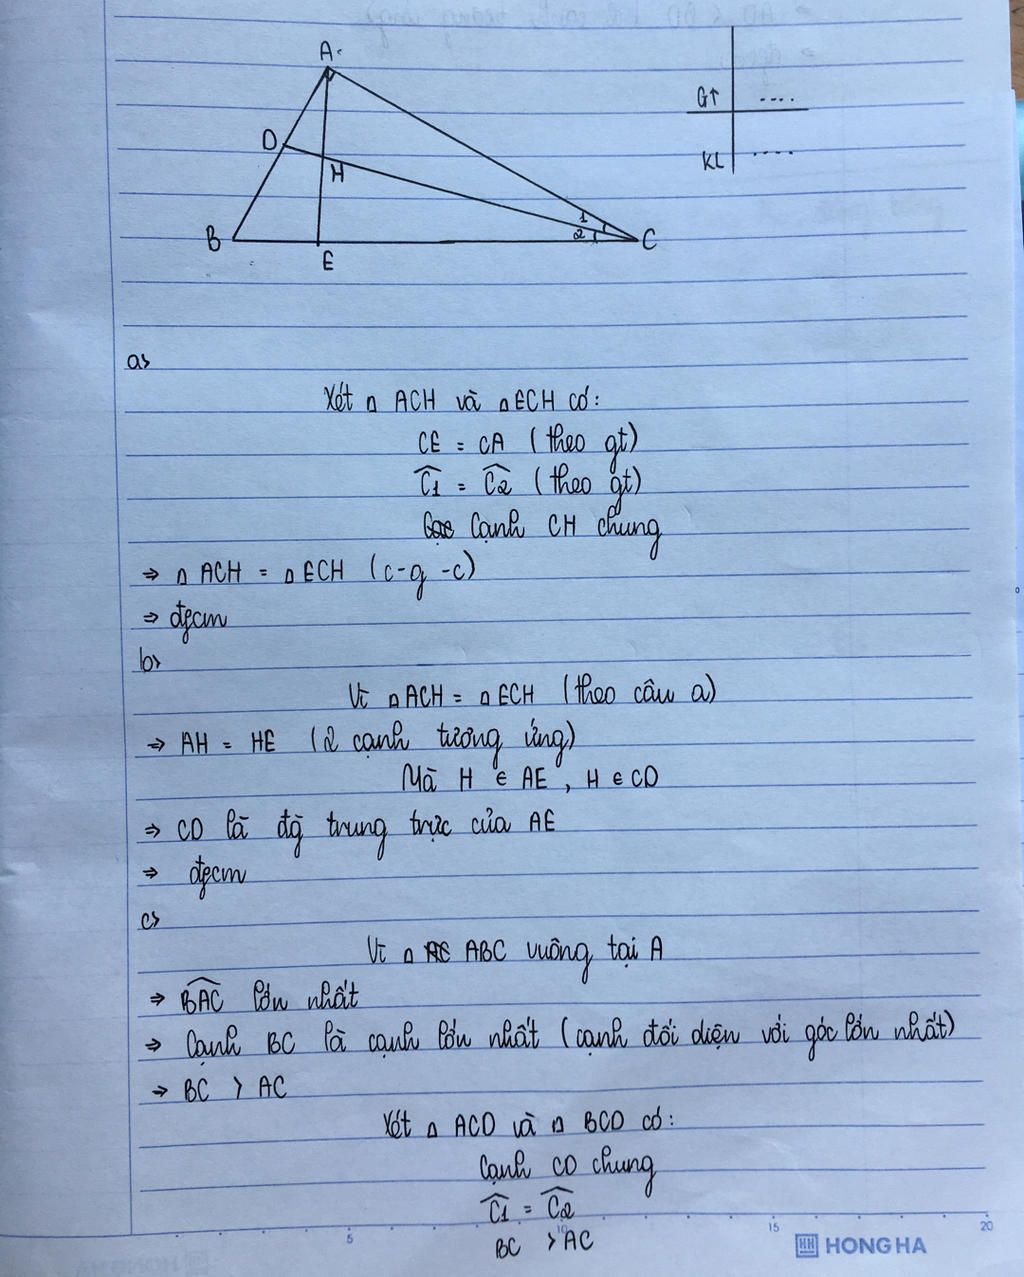 A
GT ....
KL ....
D
H
1
2
B
C
E
a>
Xét Δ ACH và Δ ECH có:
CE = CA (theo gt)
Ĉ1 = Ĉ2 (theo gt)
Cạnh CH chung
⇒ Δ ACH = Δ ECH (c-g-c)
⇒ đpcm
b>
Vì Δ ACH = Δ ECH (theo câu a)
⇒ AH = HE (2 cạnh tương ứng)
Mà H ∈ AE, H ∈ CD
⇒ CD là đg trung trực của AE
⇒ đpcm
c>
Vì Δ ABC vuông tại A
⇒ BAC lớn nhất
⇒ Cạnh BC là cạnh lớn nhất (cạnh đối diện với góc lớn nhất)
⇒ BC > AC
Xét Δ ACD và Δ BCD có:
Cạnh CD chung
Ĉ1 = Ĉ2
BC > AC
5 10 15 20
HH HONG HA